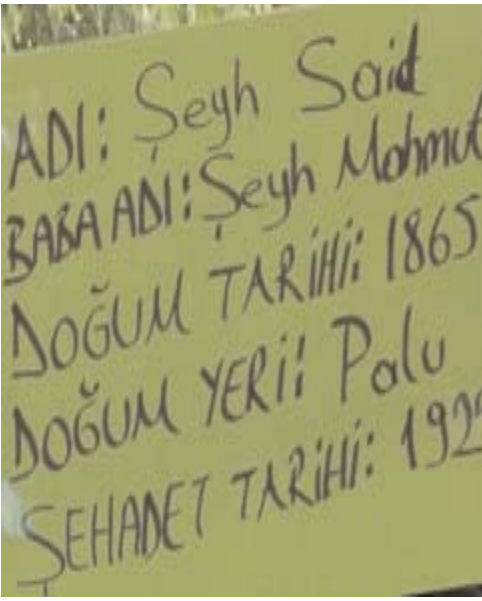 ADI: Şeyh Said
BABA ADI: Şeyh Mahmut
DOĞUM TARİHİ: 1865
DOĞUM YERİ: Palu
ŞEHADET TARİHİ: